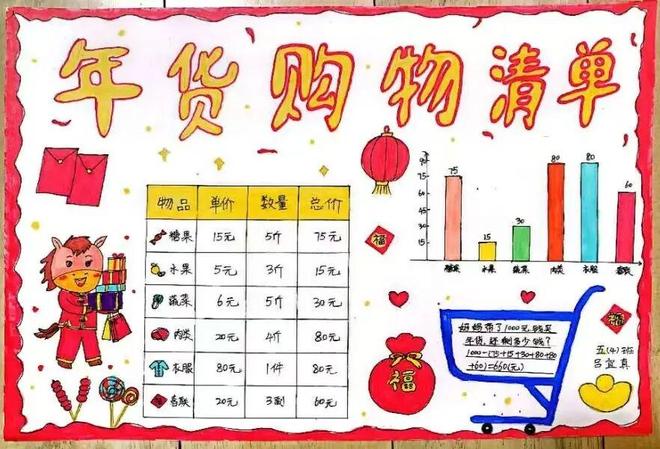 年货购物清单
物品 单价 数量 总价
糖果 15元 5斤 75元
水果 5元 3斤 15元
蔬菜 6元 5斤 30元
肉类 20元 4斤 80元
衣服 80元 1件 80元
春联 20元 3副 60元
福
福
75 15 30 80 80 60
75
45
30
15
糖果 水果 蔬菜 肉类 衣服 春联
福
妈妈带了1000元钱买
年货,还剩多少钱?
1000-(75+15+30+80+80
+60)=660(元)
五(4)班
吕宜真